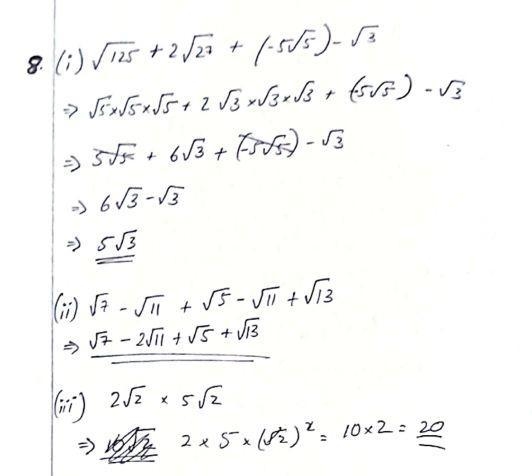 8. (i) √125 + 2√27 + (-5√5) - √3
⇒ √5×√5×√5 + 2 √3×√3×√3 + (-5√5) - √3
⇒ 5√5 + 6√3 + (-5√5) - √3
⇒ 6√3 - √3
⇒ 5√3
(ii) √7 - √11 + √5 - √11 + √13
⇒ √7 - 2√11 + √5 + √13
(iii) 2√2 × 5√2
⇒ 2 × 5 × (√2)² = 10×2 = 20